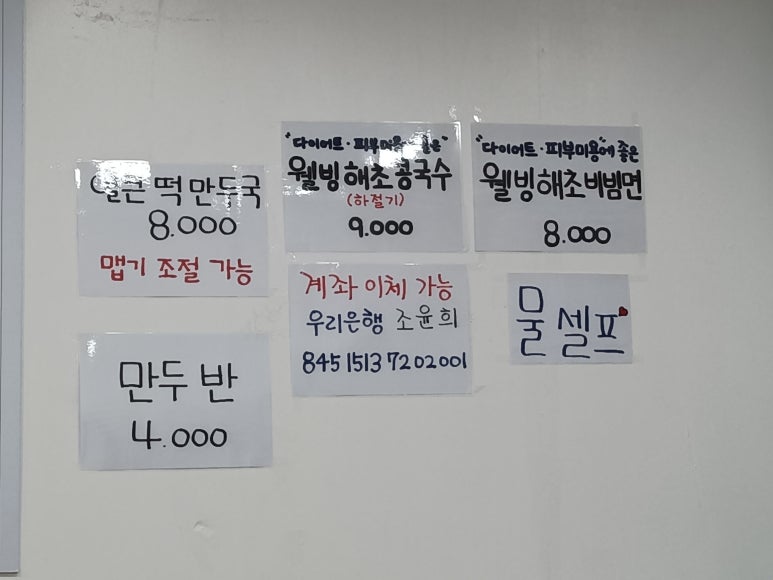 얼큰 떡만두국
8.000
맵기 조절 가능
"다이어트·피부미용에 좋은"
웰빙해초콩국수
(하절기)
9.000
"다이어트·피부미용"에 좋은
웰빙해초비빔면
8.000
계좌이체 가능
우리은행 조윤희
845 1513 7202001
물 셀프
만두 반
4.000